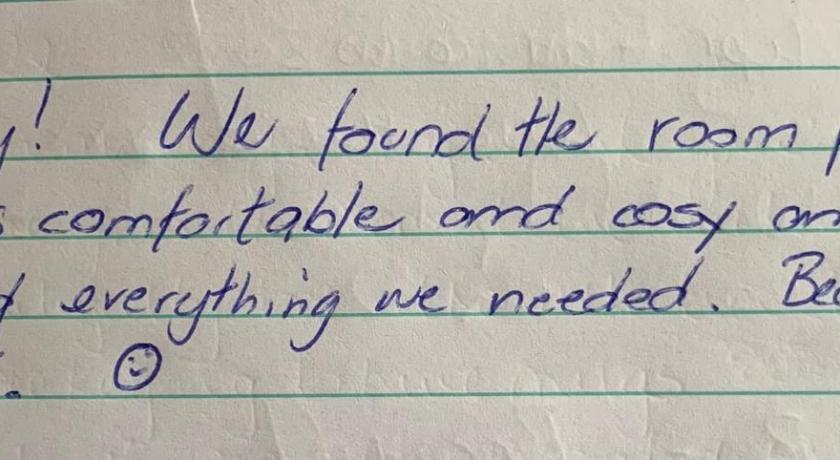 ! We found the room
comfortable and cosy
everything we needed.
☺